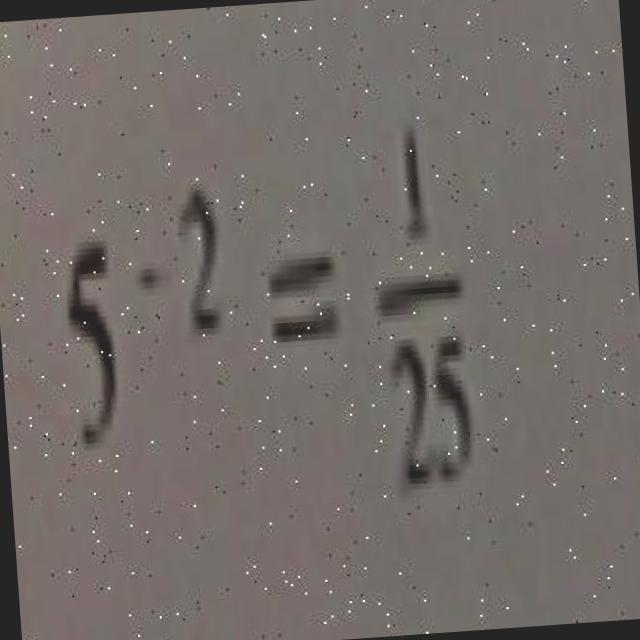 5^{-2} = \frac{1}{25}